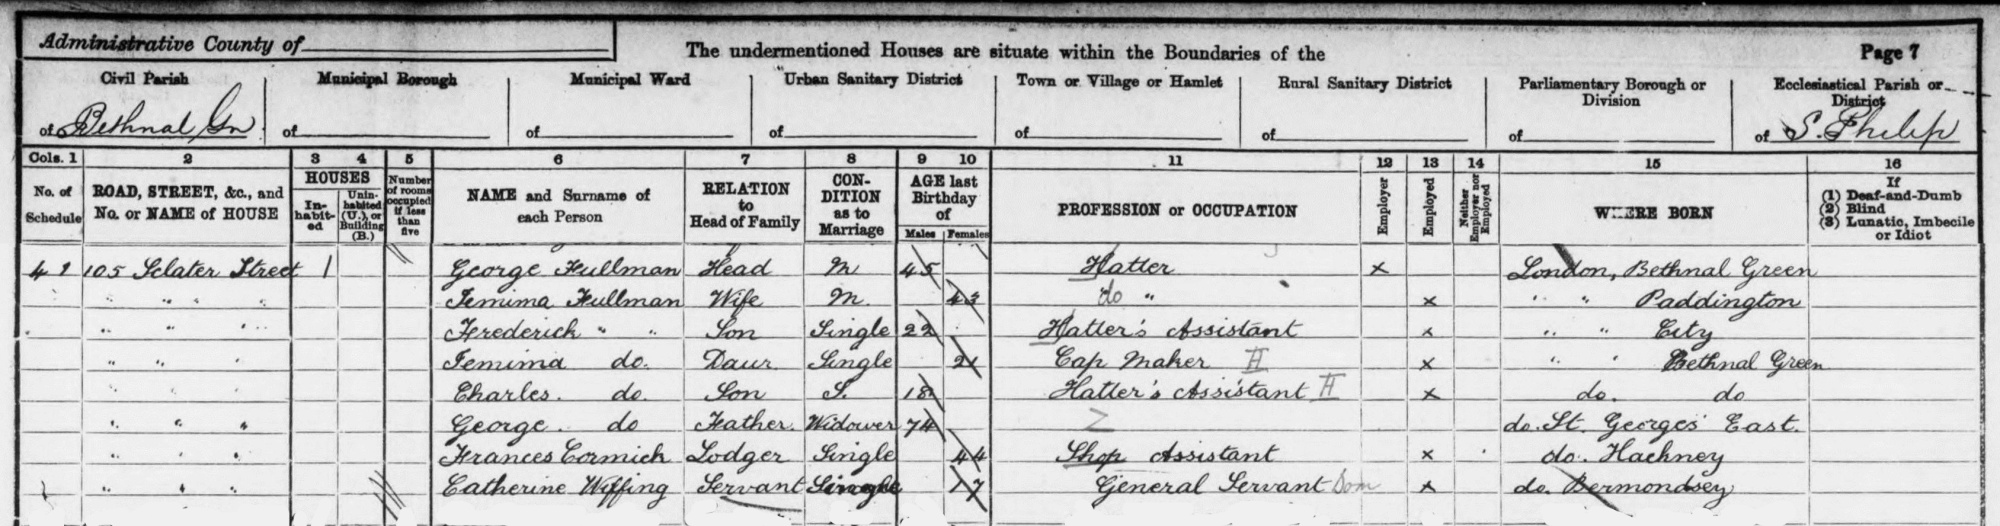 Administrative County of
The undermentioned Houses are situate within the Boundaries of the
Page 7
Civil Parish
Municipal Borough
Municipal Ward
Urban Sanitary District
Town or Village or Hamlet
Rural Sanitary District
Parliamentary Borough or Division
Ecclesiastical Parish or District
of Bethnal Gn of of of of of of of S. Philip
Cols. 1 2 3 4 5 6 7 8 9 10 11 12 13 14 15 16
No. of Schedule
ROAD, STREET, &c., and No. or NAME of HOUSE
HOUSES
In-habit-ed
Unin-habited (U.), or Building (B.)
Number of rooms occupied if less than five
NAME and Surname of each Person
RELATION to Head of Family
CON-DITION as to Marriage
AGE last Birthday of
Males Females
PROFESSION or OCCUPATION
Employer
Employed
Neither Employer nor Employed
WHERE BORN
If
(1) Deaf-and-Dumb
(2) Blind
(3) Lunatic, Imbecile or Idiot
105 Sclater Street 1 George Hullman Head M 45 Hatter x London, Bethnal Green
" " " Jemima Hullman Wife M. 43 do " x " " Paddington
" " " Frederick " " Son Single 22 Hatter's Assistant x " " City
" " " Jemima do. Daur Single 21 Cap Maker H x " " Bethnal Green
" " " Charles. do. Son S. 18 Hatter's Assistant H x do. do
" " " George. do Father. Widower 74 do. St. Georges' East.
" " " Frances Cormick Lodger Single 44 Shop Assistant x do. Hackney
" " " Catherine Wiffing Servant Single 17 General Servant Dom x do. Bermondsey